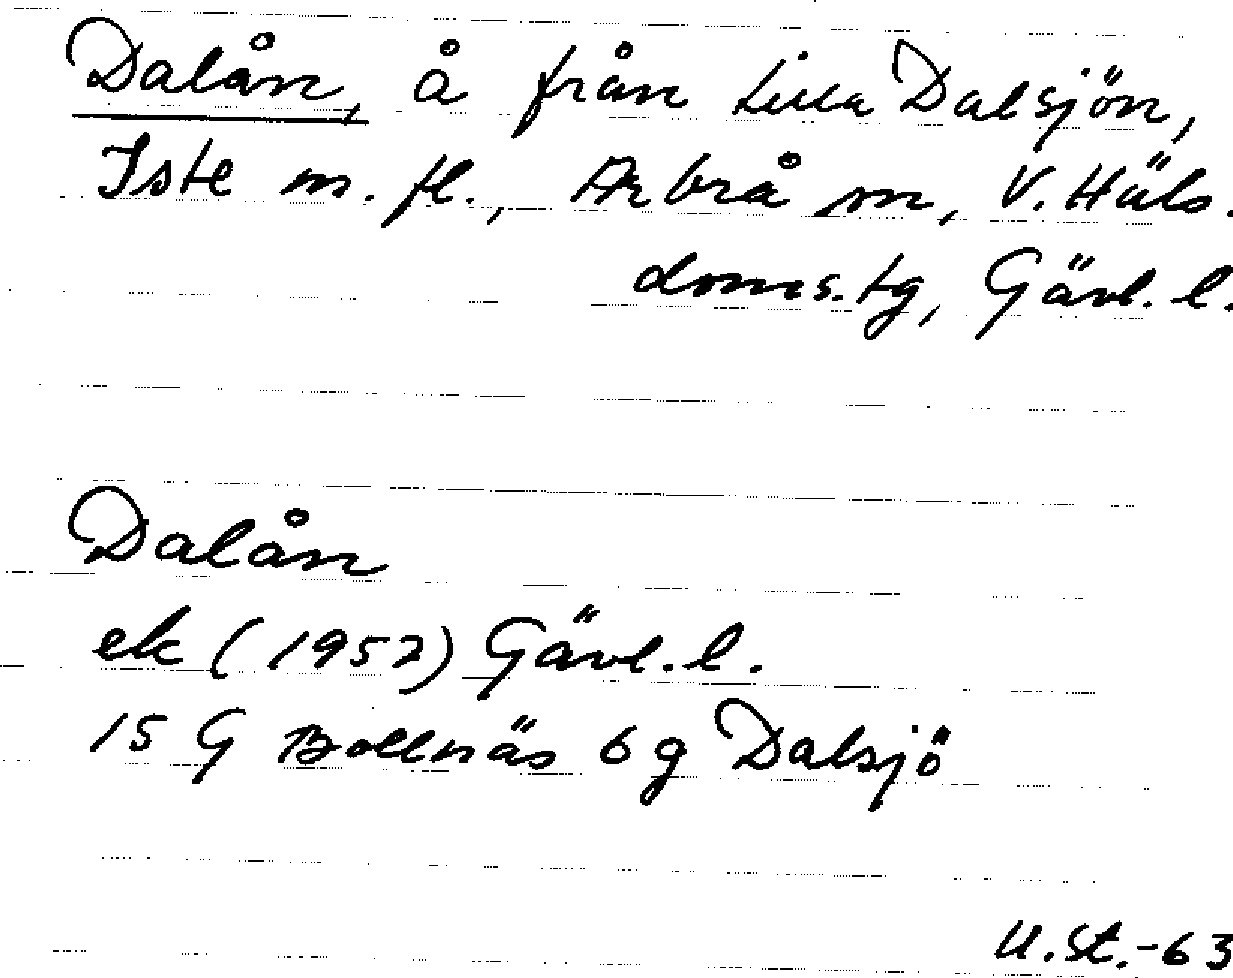 Dalån, å från Lilla Dalsjön,
Iste m. fl., Arbrå sn, V. Häls.
doms.tg, Gävl. l.
Dalån
ek (1952) Gävl. l.
15 G Bollnäs 6 g Dalsjö
U.St.-63